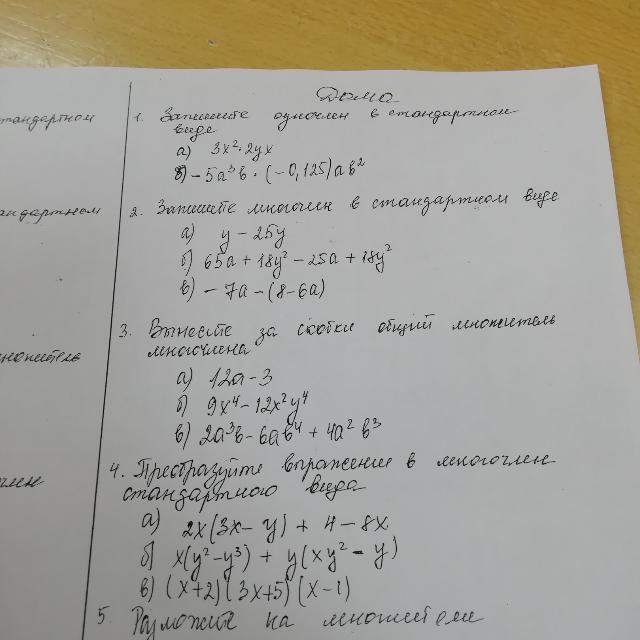 Дома
тандартном
1. Запишите одночлен в стандартном
виде
а) 3x²·2yx
б) -5a³b · (-0,125)ab²
андартном
2. Запишите многочлен в стандартном виде
а) y - 25y
б) 65a + 18y² - 25a + 18y²
в) - 7a - (8-6a)
3. Вынесите за скобки общий множитель
многочлена
ножитель
а) 12a - 3
б) 9x⁴ - 12x²y⁴
в) 2a³b - 6ab⁴ + 4a²b³
4. Преобразуйте выражение в многочлен
стандартного вида
член
а) 2x(3x - y) + 4 - 8x
б) x(y² - y³) + y(xy² - y)
в) (x+2)(3x+5)(x-1)
5. Разложите на множители